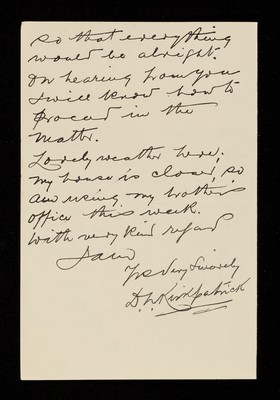 so that everything
would be alright.
On hearing from you
I will know how to
proceed in the
matter.
Lovely weather here;
my house is closed, so
am using my brothers
office this week.
With very kind regard
I am
Yrs Very Sincerely
D. L. Kirkpatrick